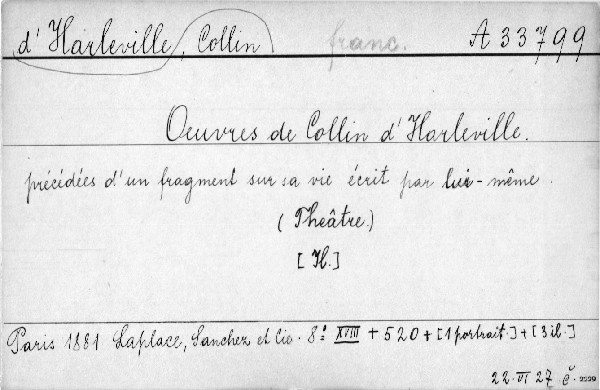 d'Harleville, Collin franc. A 33799
Oeuvres de Collin d'Harleville.
précédées d'un fragment sur sa vie écrit par lui-même.
(Théâtre.)
[Il.]
Paris 1881 Laplace, Sanchez et Cie. 8° XVIII + 520 + [1 portrait.] + [3 il.]
22 VI 27 č.